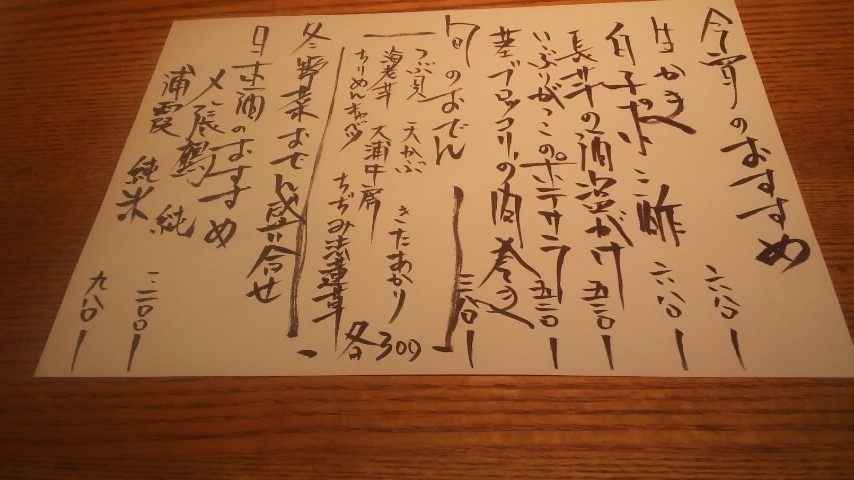 今宵のおすすめ
生かき 六八〇
白子ポン酢 六八〇
長芋の酒盗がけ 五三〇
いぶりがっこのポテサラ 五三〇
茎ブロッコリーの肉巻き 三八〇
旬のおでん
つぶ貝 天かぶ きたあかり
海老芋 大浦牛蒡
ちりめんキャベツ ちぢみ法蓮草
各300
冬野菜おでん盛り合せ
日本酒のおすすめ
〆張鶴 純
浦霞 純米
九八〇